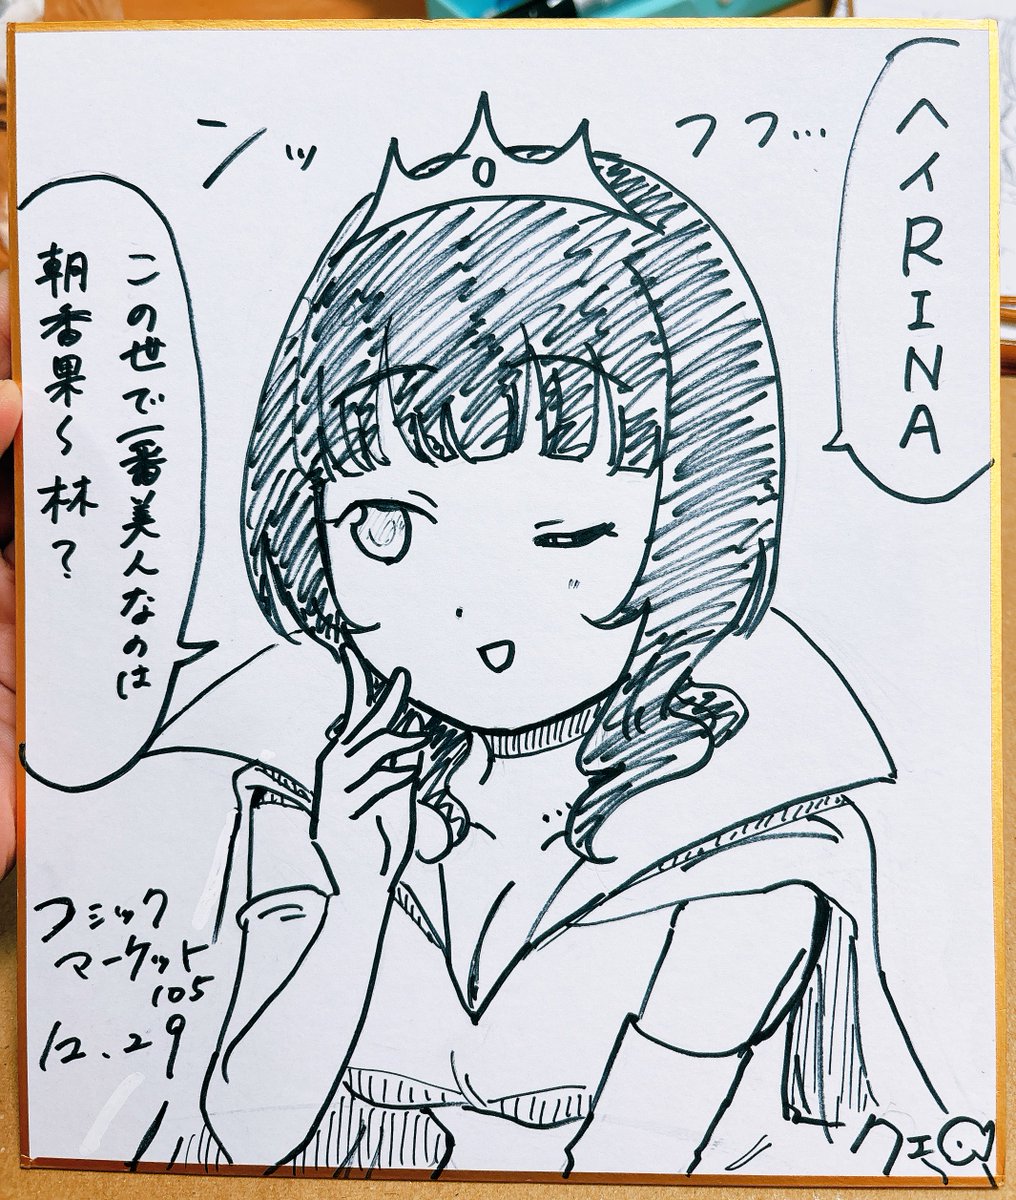 ヘイRINA
フフ…
ンッ
この世で一番美人なのは
朝香果〜林?
コミック
マーケット
105
12.29
クェ